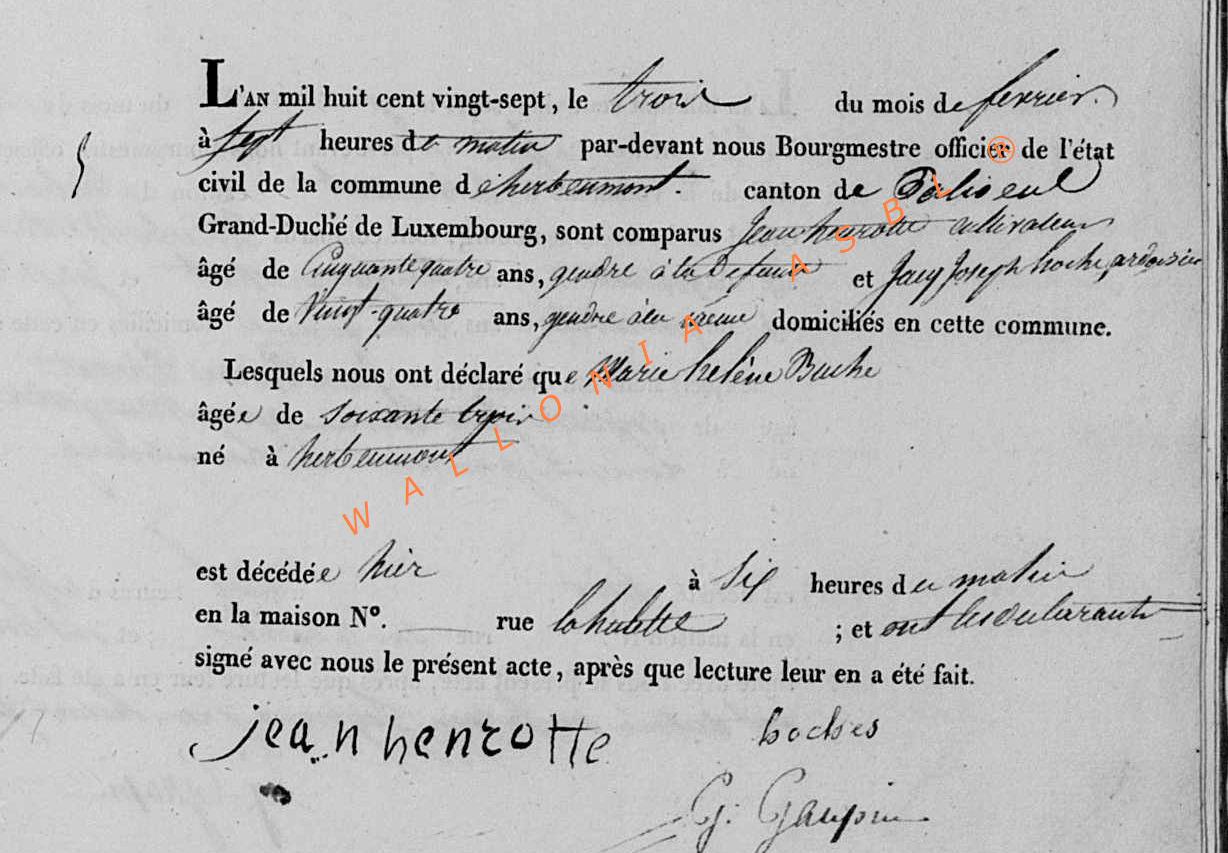 L'AN mil huit cent vingt-sept, le trois du mois de fevrier
à sept heures de matin par-devant nous Bourgmestre officier de l'état
civil de la commune d'herbeumont. canton de Paliseul
Grand-Duché de Luxembourg, sont comparus Jean henrotte cultivateur
âgé de Cinquante quatre ans, gendre à la Defunte et Jacq Joseph hoche, ardoisier
âgé de Vingt-quatre ans, gendre à la domiciliés en cette commune.
Lesquels nous ont déclaré que Marie helène Buche
âgée de soixante trois
né à herbeumont
est décédée hier à six heures du matin
en la maison N°. rue lahulette ; et ont les declarants
signé avec nous le présent acte, après que lecture leur en a été fait.
jean henrotte hoches
G. Gaupin
WALLONIA ASBL ®